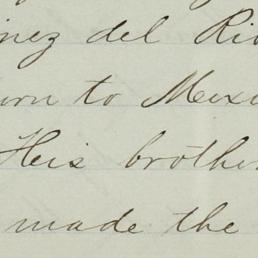 inez del Rio
urn to Mexi
His brother
made the